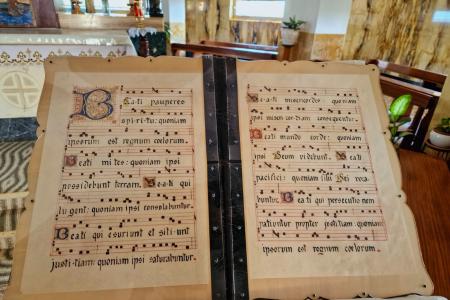 Beati pauperes
spiritu: quoniam
ipsorum est regnum coelorum.
Beati mites: quoniam ipsi
possidebunt terram. Beati qui
lugent: quoniam ipsi consolabuntur.
Beati qui esuriunt et sitiunt
justitiam: quoniam ipsi saturabuntur.
Beati misericordes: quoniam
ipsi misericordiam consequentur.
Beati mundo corde: quoniam
ipsi Deum videbunt. Beati
pacifici: quoniam filii Dei voca
buntur. Beati qui persecutionem
patiuntur propter justitiam: quoniam
ipsorum est regnum coelorum.